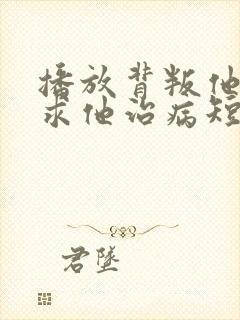 播放背叛他
求他治病短
君墜